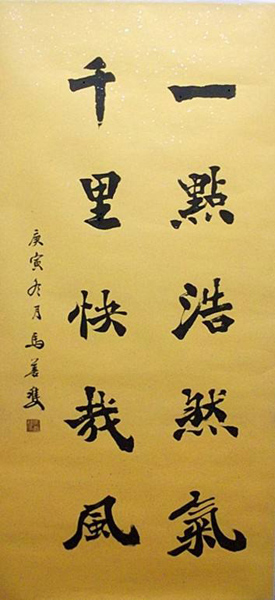 一點浩然氣
千里快哉風
庚寅冬月馬善雙